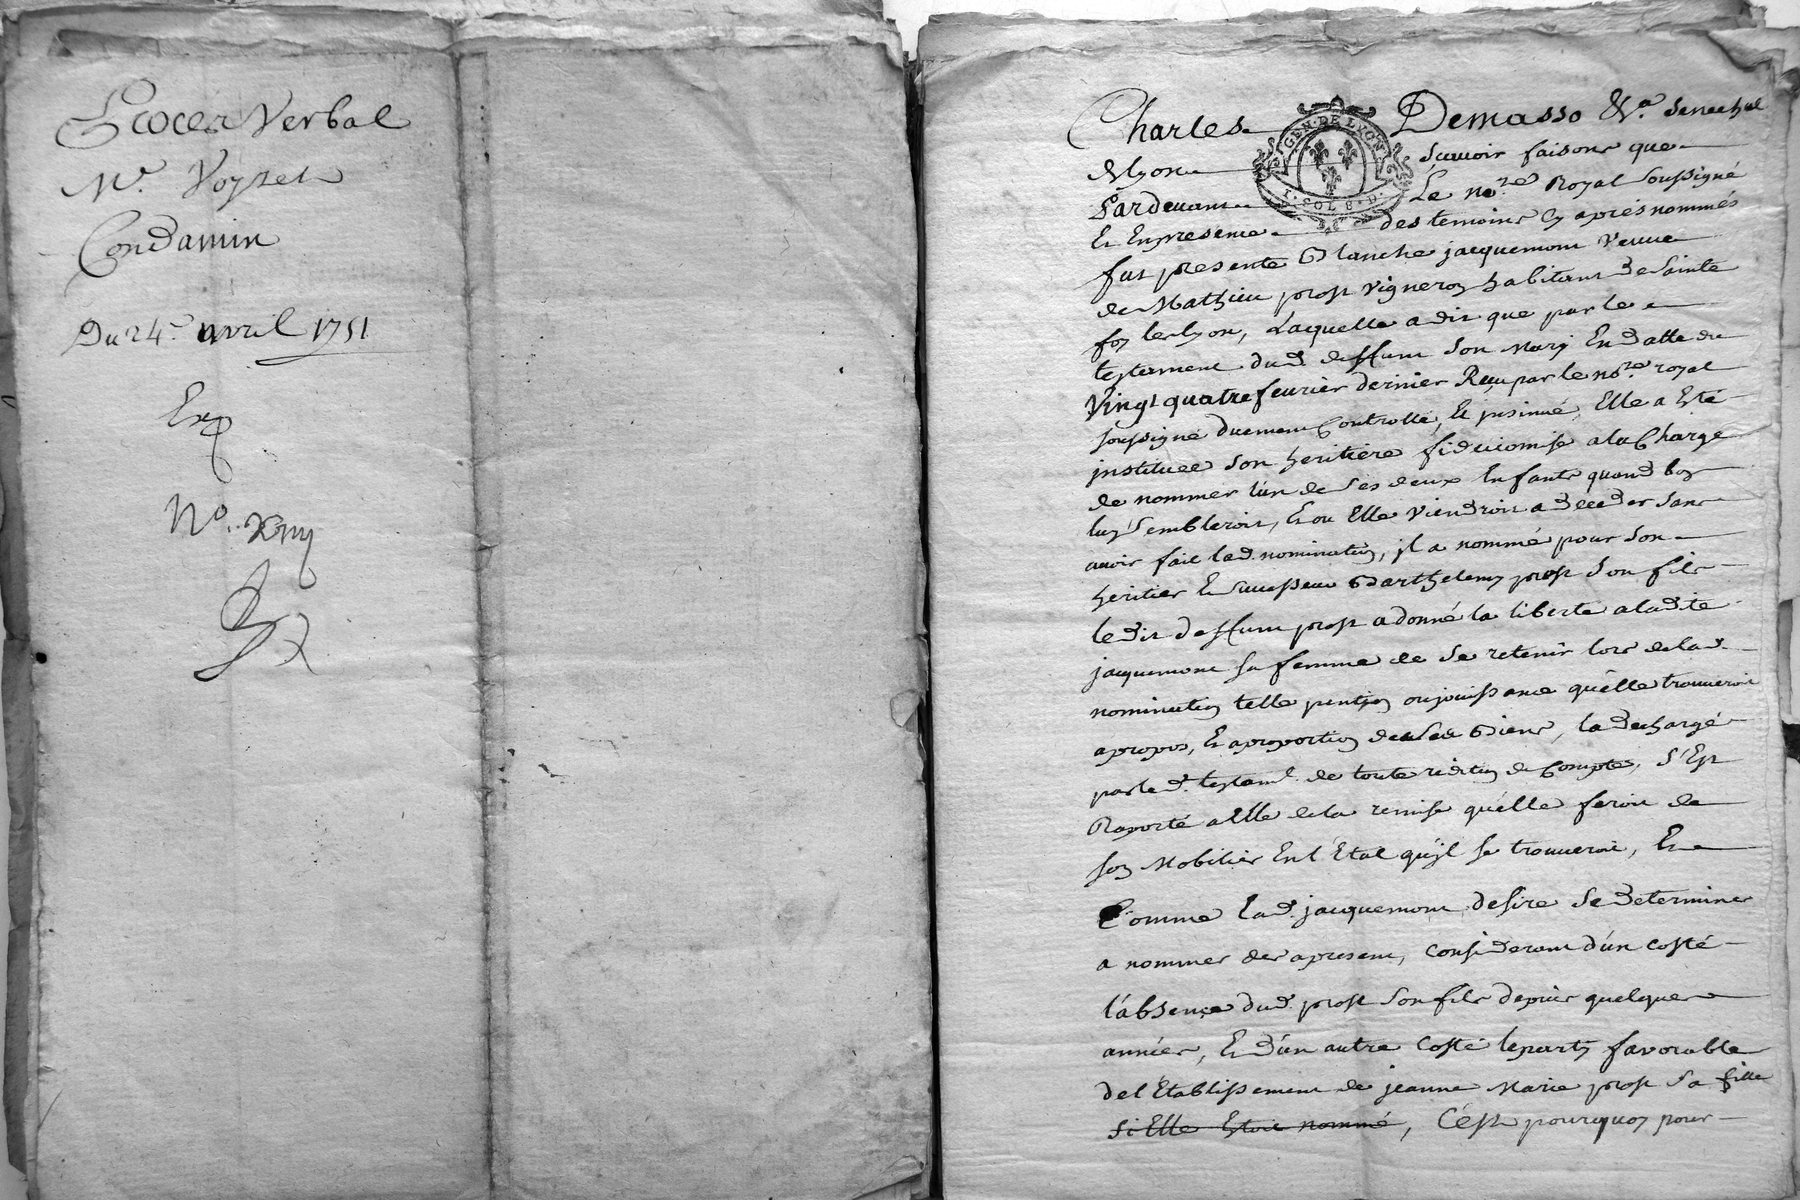 Proces Verbal
Mr. Voyret
Condamin
Du 24e. avril 1751
Exp
No.
Charles Demasso &a. Senechal
GEN. DE LYON
1. SOL 8. D.
de lyon Sçavoir faisons que
Pardevant Le nore. Royal soussigné
Et En presence des temoins cy aprés nommés
fut presente Blanche jacquemont veuve
de Mathieu prost vigneron habitant de Sainte
foy les lyon, Laquelle a dit que par le
testament dud. deffunt son Mary En datte du
Vingt quatre fevrier dernier Reçu par le nore. royal
soussigné duement Controllé, Et insinué, Elle a Esté
instituee son heritiere fiduciomise a la Charge
de nommer l'un de Ses deux Enfants quand bon
luy Sembleroit, Et ou Elle viendroit a deceder sans
avoir fait lad. nomination, jl a nommé pour son
heritier Et Successeur Barthelemy prost Son fils
le dit deffunt prost a donné la liberté a la dite
jacquemont sa femme de Se retenir lors de lad.
nomination telle pention ou jouissance qu'elle trouveroit
apropos, Et a proportion de Biens, la dechargé
par led. testamt. de toute redition de Compte, S'Est
Raporté a Elle de la remise qu'elle feroit de
son Mobilier En l'Etat qu'jl se trouveroit, Et
Comme lad. jacquemont desire Se determiner
a nommer des apresent, Considerant d'un costé
l'absence dud. prost son fils depuis quelques
années, Et d'un autre Costé le party favorable
de l'Etablissement de jeanne Marie prost Sa fille
si Elle Estoit nommé, C'est pourquoy pour